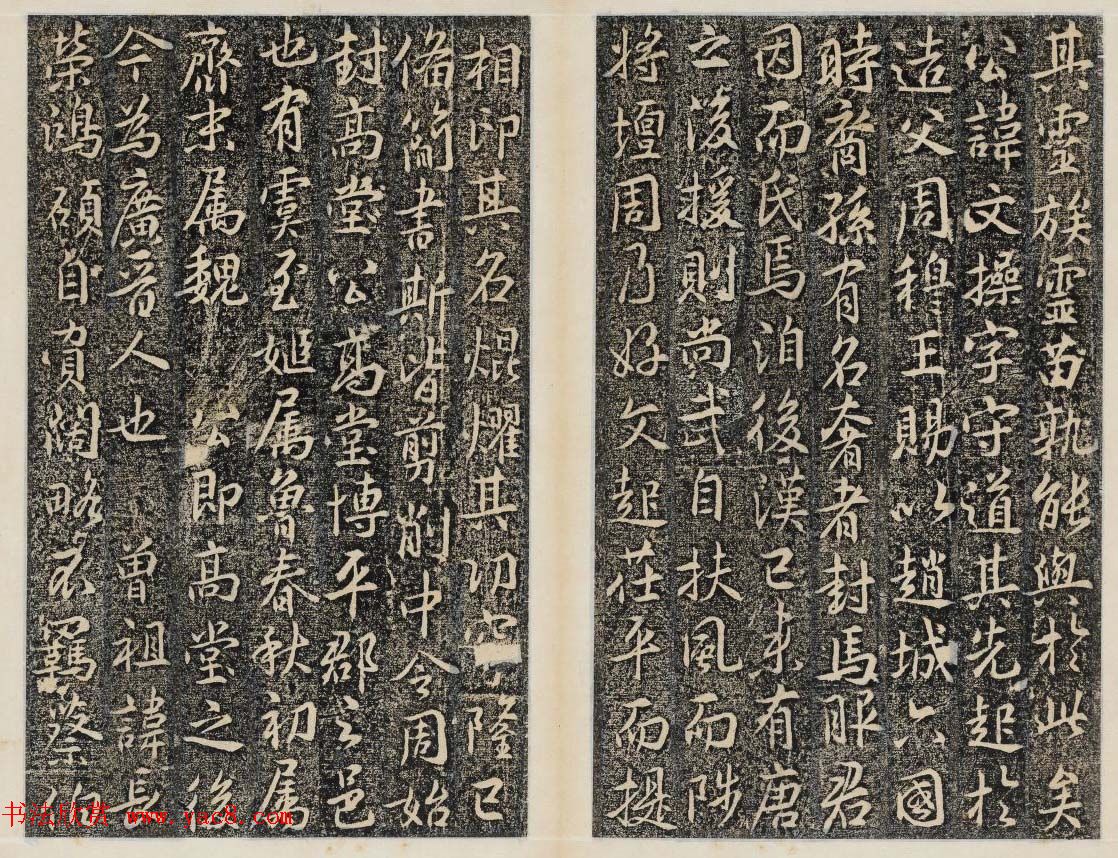 其靈族靈苗孰能與於此矣
公諱文操字守道其先起於
造父周穆王賜以趙城六國
時裔孫有名奢者封馬服君
因而氏焉洎後漢已來有唐
之後援則尚武自扶風而陟
將壇周乃好文起茌平而提
相印其名焜燿其功隆已
備簡書斯皆剪削中令周始
封高堂公高堂博平郡之邑
也有虞至姬属魯春秋初属
齊末属魏公即高堂之後
今為廣晉人也曾祖諱長
榮鴻碩自賁闊略不羈蔡伯
书法欣赏 www.yac8.com